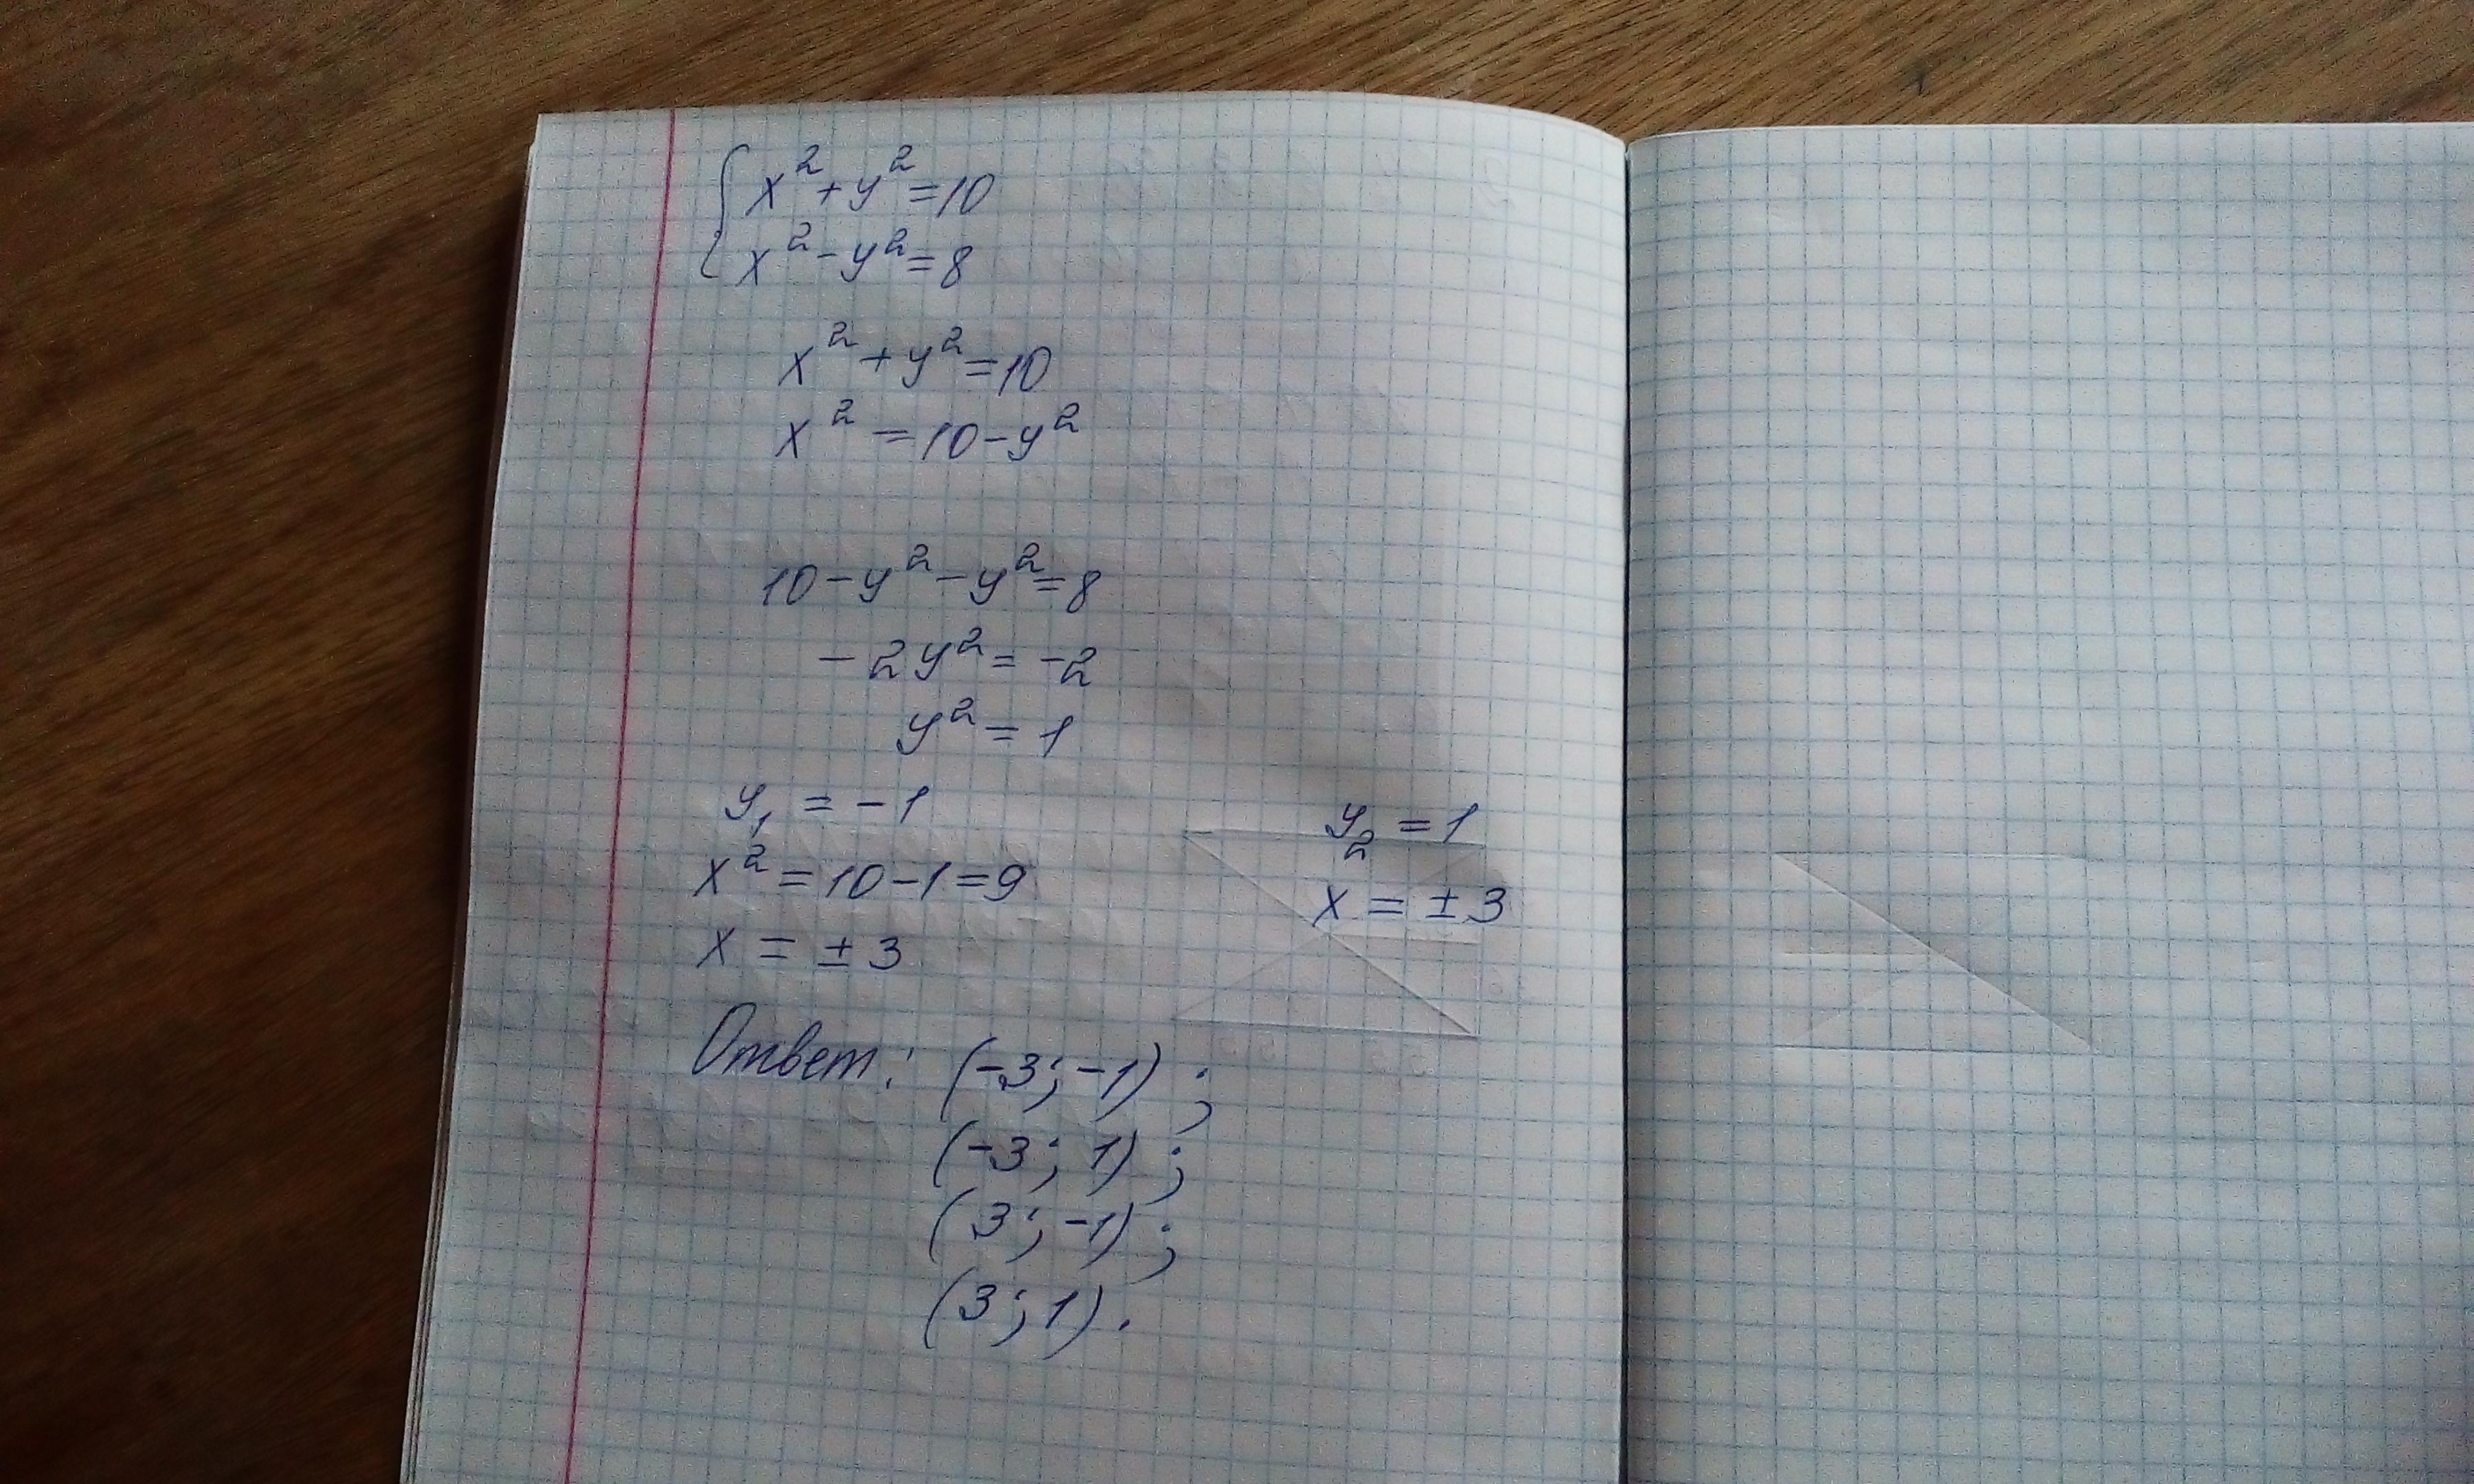 { x² + y² = 10
x² - y² = 8
x² + y² = 10
x² = 10 - y²
10 - y² - y² = 8
- 2y² = -2
y² = 1
y₁ = -1
x² = 10 - 1 = 9
x = ± 3
y₂ = 1
x = ± 3
Ответ: (-3; -1);
(-3; 1);
(3; -1);
(3; 1).